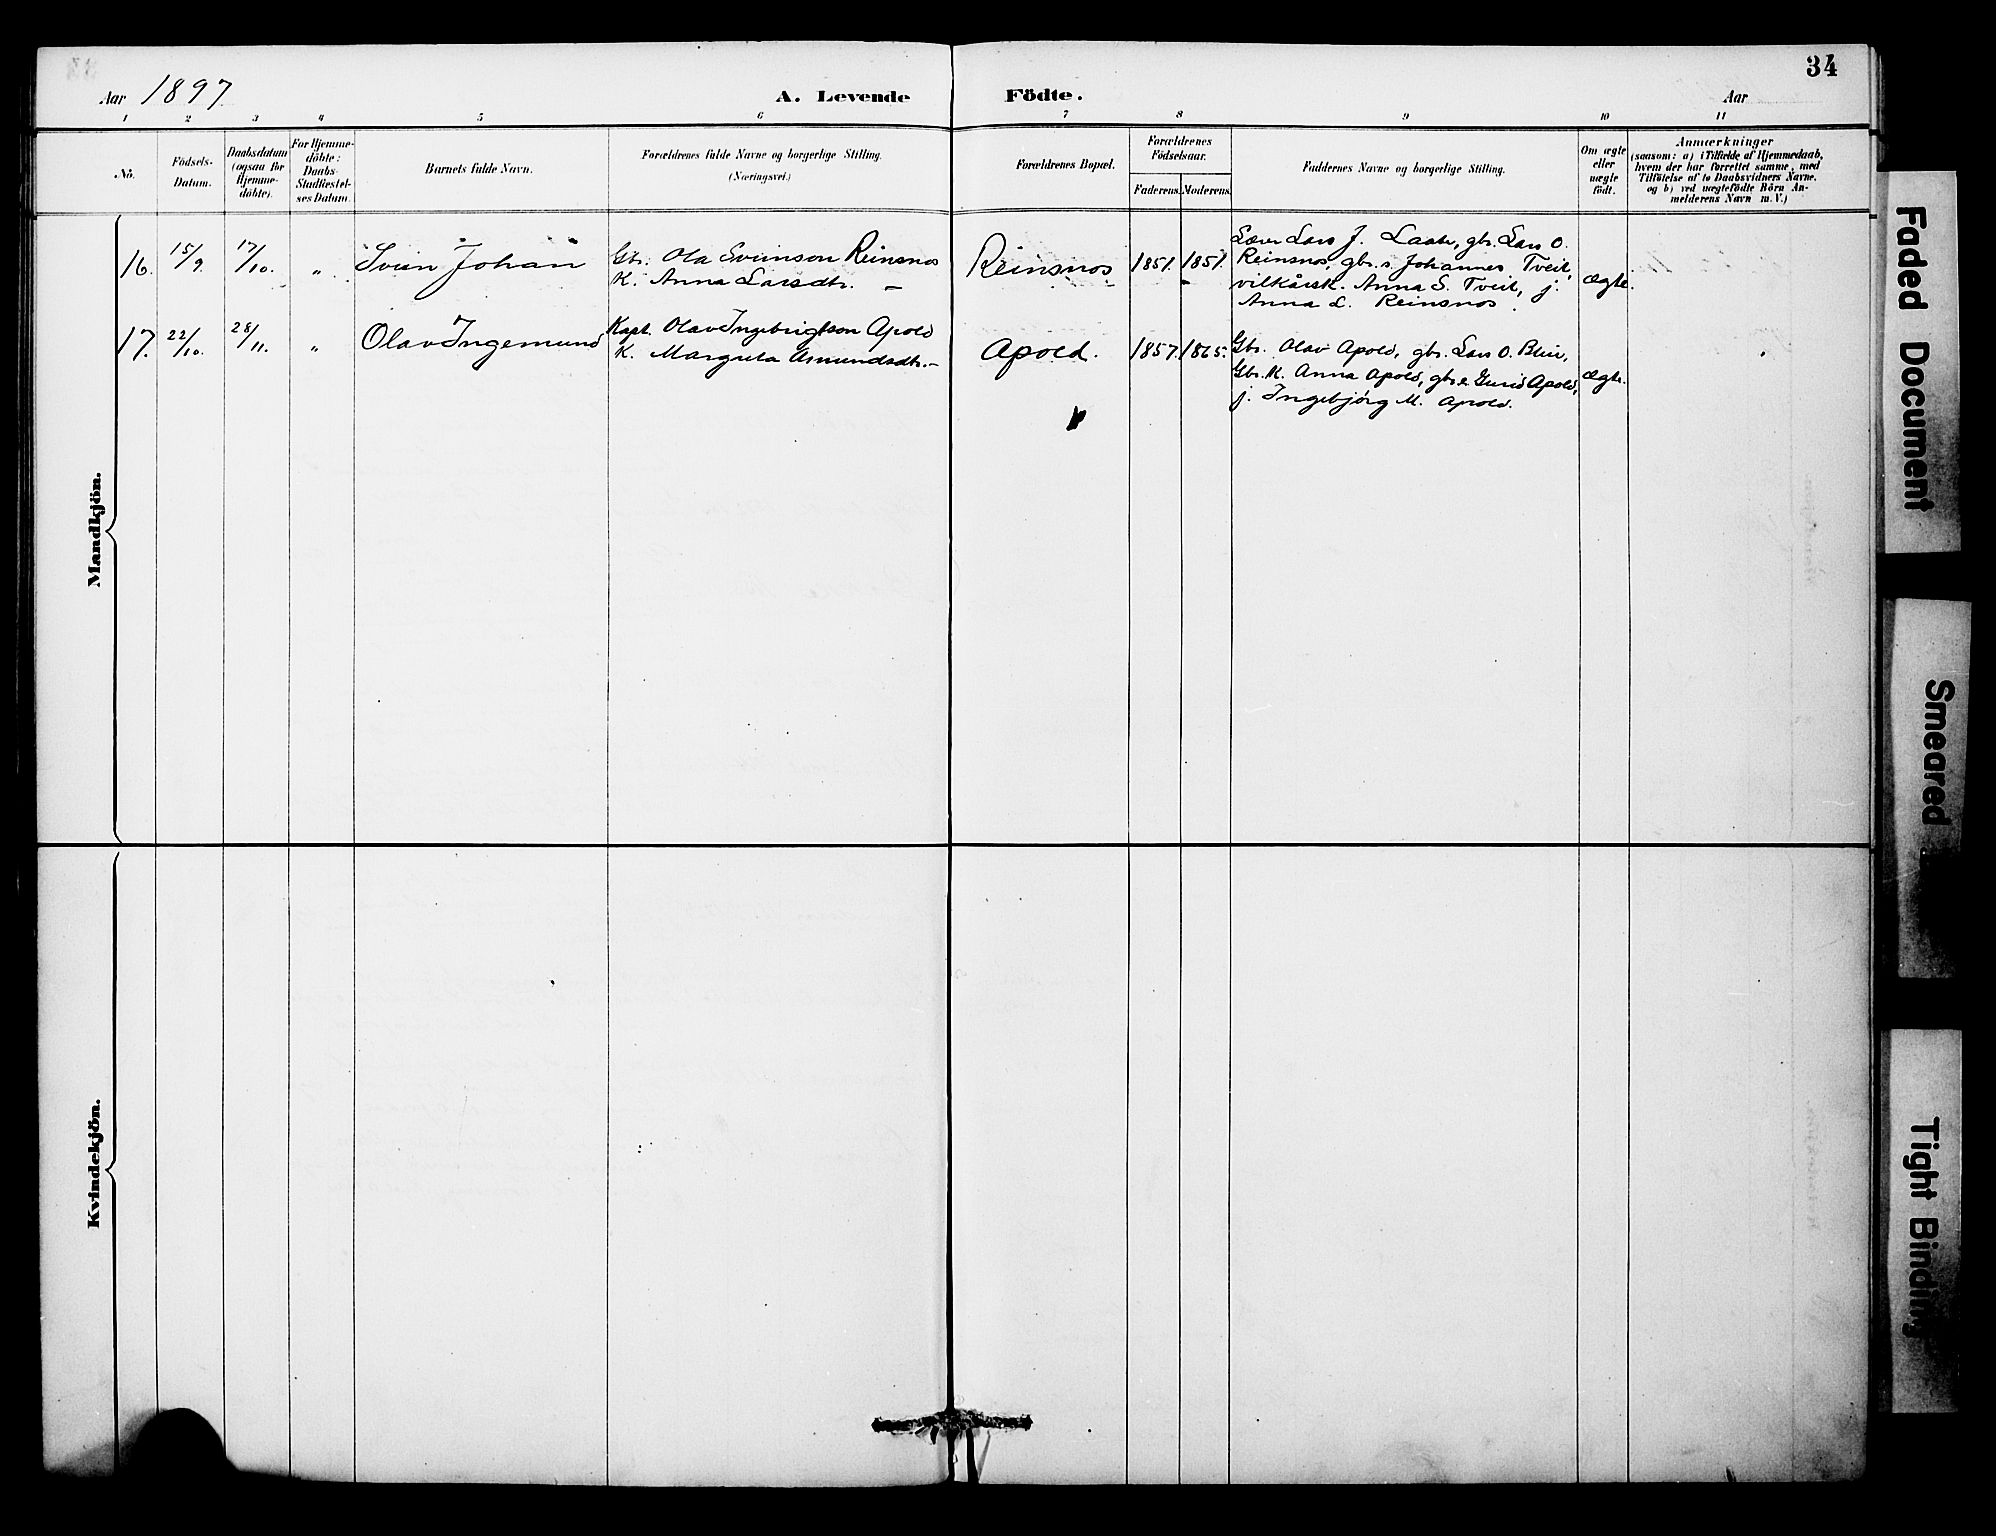 34
Aar 1897 A. Levende Födte. Aar
1 2 3 4 5 6 7 8 9 10 11
No.
Födsels-
Datum.
Daabsdatum
(ogsaa for
Hjemme-
döbte).
For Hjemme-
döbte:
Daabs-
Stadfæstel-
ses Datum.
Barnets fulde Navn.
Forældrenes fulde Navne og borgerlige Stilling.
(Næringsvei.)
Forældrenes Bopæl.
Forældrenes
Födselsaar.
Faderens. Moderens.
Faddernes Navne og borgerlige Stilling.
Om ægte
eller
uægte
födt.
Anmærkninger
(saasom: a) i Tilfælde af Hjemmedaab,
hvem der har forrettet samme, med
Tilföielse af to Daabsvidners Navne,
og b) ved uægtefödte Börn An-
melderens Navn m.V.)
Mandkjön.
16. 15/9. 17/10. „ Svein Johan
Gbr. Ola Sveinson Reinsnos
K. Anna Larsdtr. –
Reinsnos 1851. 1851.
Lars J. gbr. Lars O.
Reinsnos, gbr.s. Johannes Tveit,
vilkårsk. Anna S. Tveit, j.
Anna L. Reinsnos.
ægte.
17. 22/10. 28/11. „ Olav Ingemund
Kapt. Olav Ingebrigtson Apold
K. Margreta Amundsdtr. –
Apold. 1857. 1865.
Gbr. Olav Apold, gbr. Lars O.
Gbr. K. Anna Apold, gbr.e. Gurid Apold,
j. Ingebjörg M. Apold.
ægte.
Kvindekjön.
Faded Document
Smeared
Tight Binding